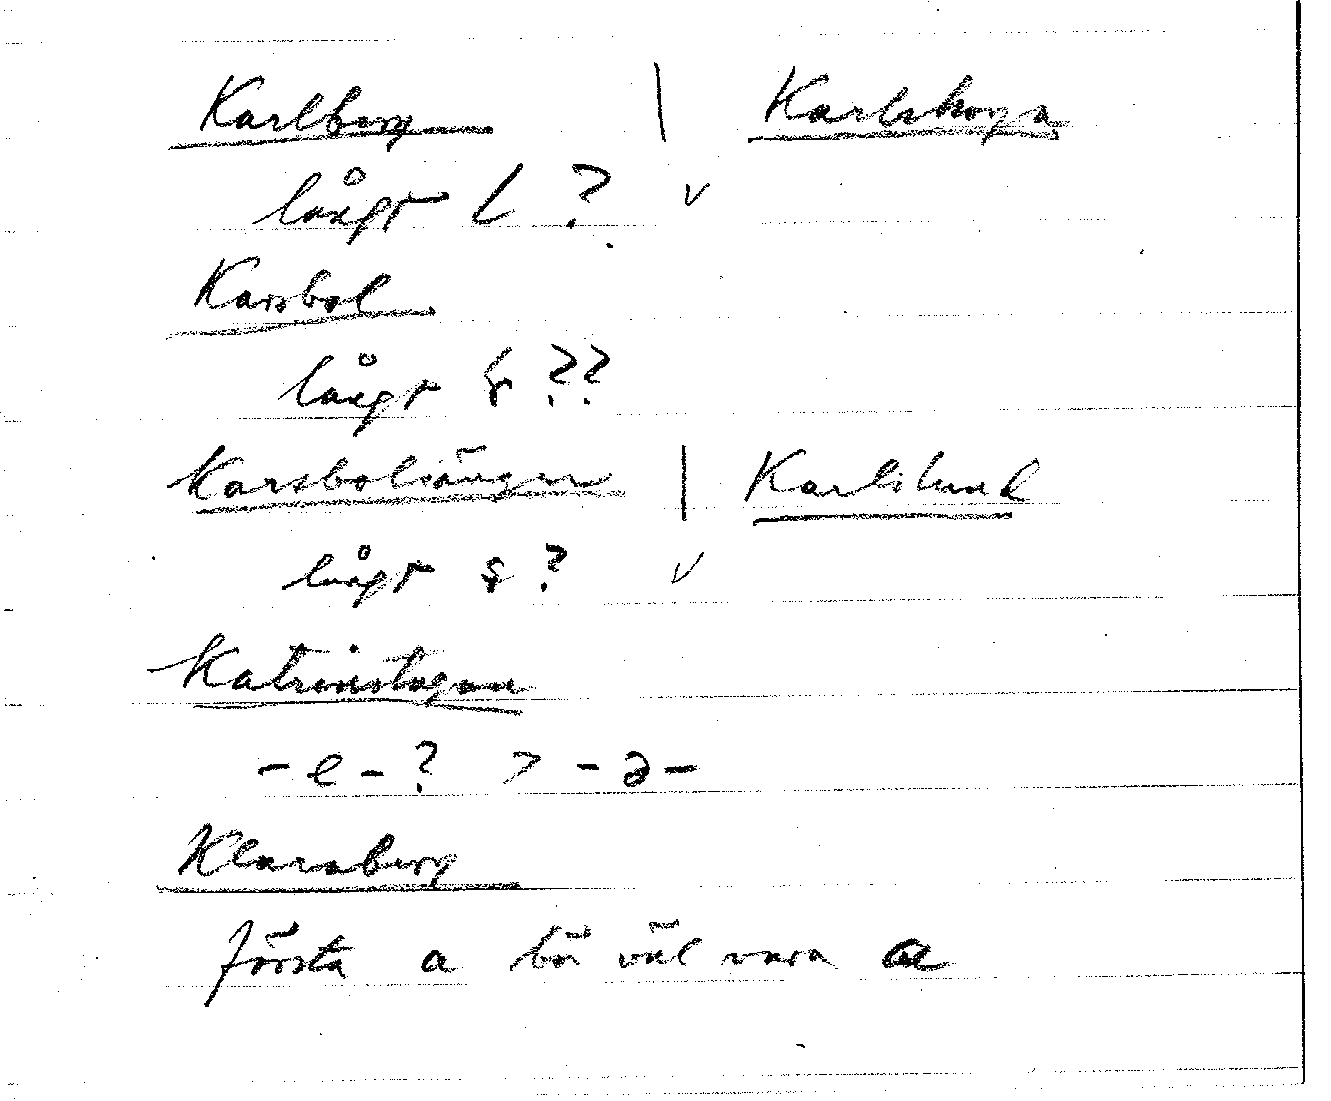 Karlberg | Karlskoga
långt l ? v
Karsbol
långt ??
Karsbolsängen | Karlslund
långt s ? v
Katrinstugan
- e - ? > - ə -
Klaraberg
första a bör väl vara ɑ